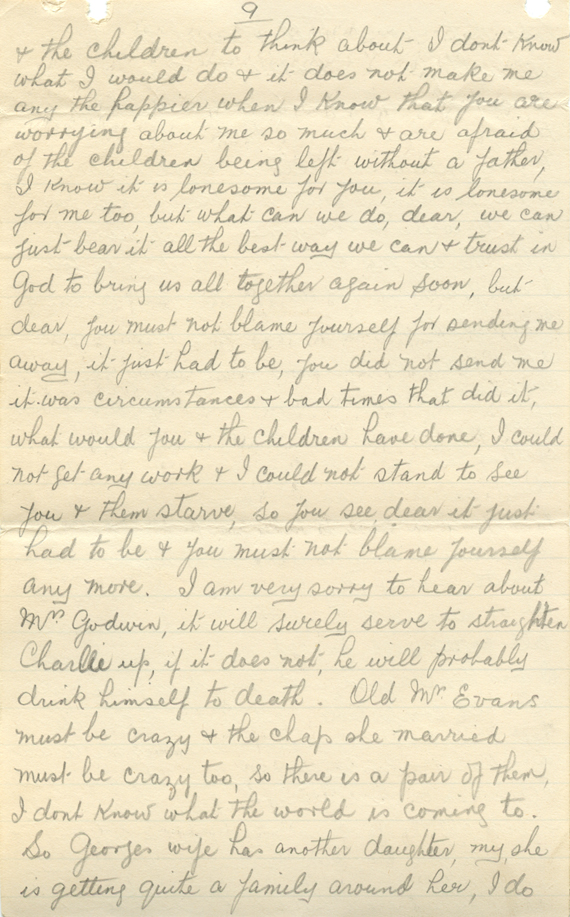 9
& the children to think about I dont Know
what I would do & it does not make me
any the happier when I Know that you are
worrying about me so much & are afraid
of the children being left without a father,
I Know it is lonesome for you, it is lonesome
for me too, but what can we do, dear, we can
just bear it all the best way we can & trust in
God to bring us all together again soon, but
dear, you must not blame yourself for sending me
away, it just had to be, you did not send me
it was circumstances & bad times that did it,
what would you & the children have done, I could
not get any work & I could not stand to see
you & them starve, so you see dear it just
had to be & you must not blame yourself
any more. I am very sorry to hear about
Mrs Godwin, it will surely serve to straighten
Charlie up, if it does not, he will probably
drink himself to death. Old Mr Evans
must be crazy & the chap she married
must be crazy too, so there is a pair of them,
I dont Know what the world is coming to.
So Georges wife has another daughter, my, she
is getting quite a family around her, I do